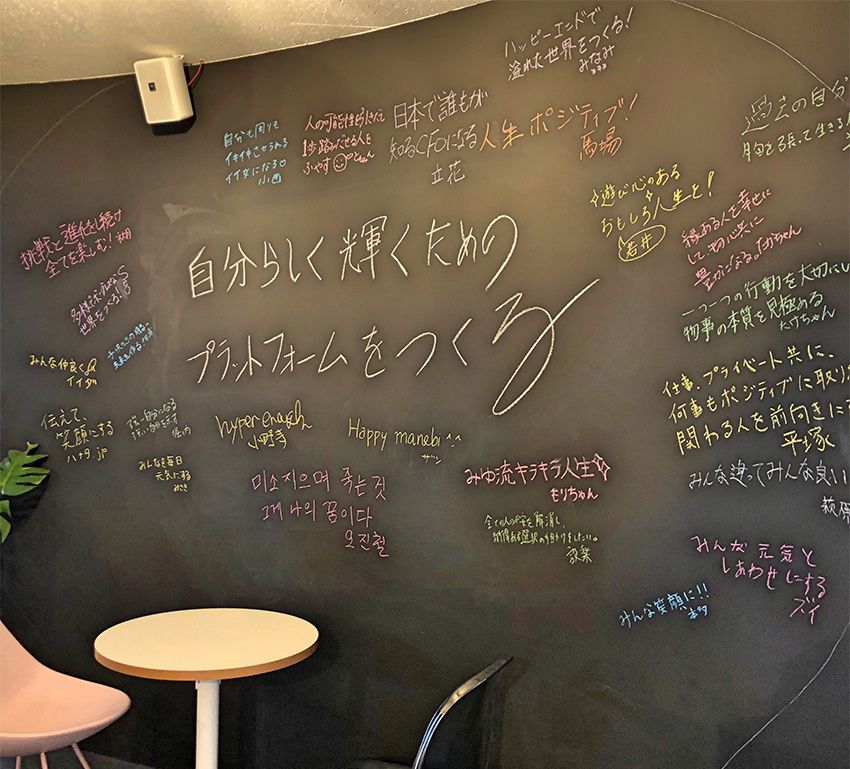 ハッピーエンドで
溢れた世界をつくる!
みなみ
自分も周りも
イキイキさせられる
イイ女になる
小西
人の可能性を
1歩踏みだせる人を
ふやす
日本で誰もが
知るCFOになる
立花
人生ポジティブ!
馬場
過去の自分
胸を張って生きる
遊び心のある
おもしろ人生を!
若井
挑戦と進化し続け
全てを楽しむ!
縁ある人を幸せに
して、物心共に
豊かになる。
自分らしく輝くための
プラットフォームをつくる
世界をつくる。
一つ一つの行動を大切にし
物事の本質を見極める
たけちゃん
みんな仲良く
イイダ
仕事、プライベート共に、
何事もポジティブに取り
関わる人を前向きに
平塚
伝えて、
笑顔にする
ハナタ.jp
hyper
小野寺
Happy manabi ^^
みんなを毎日
元気にする
みさき
미소지으며 죽는것
그게 나의 꿈이다
오진철
みゆ流キラキラ人生
もりちゃん
みんな違ってみんな良い
萩原
全ての人の不安を解消し、
みんな元気と
しあわせにする
ズイ
みんな笑顔に!!